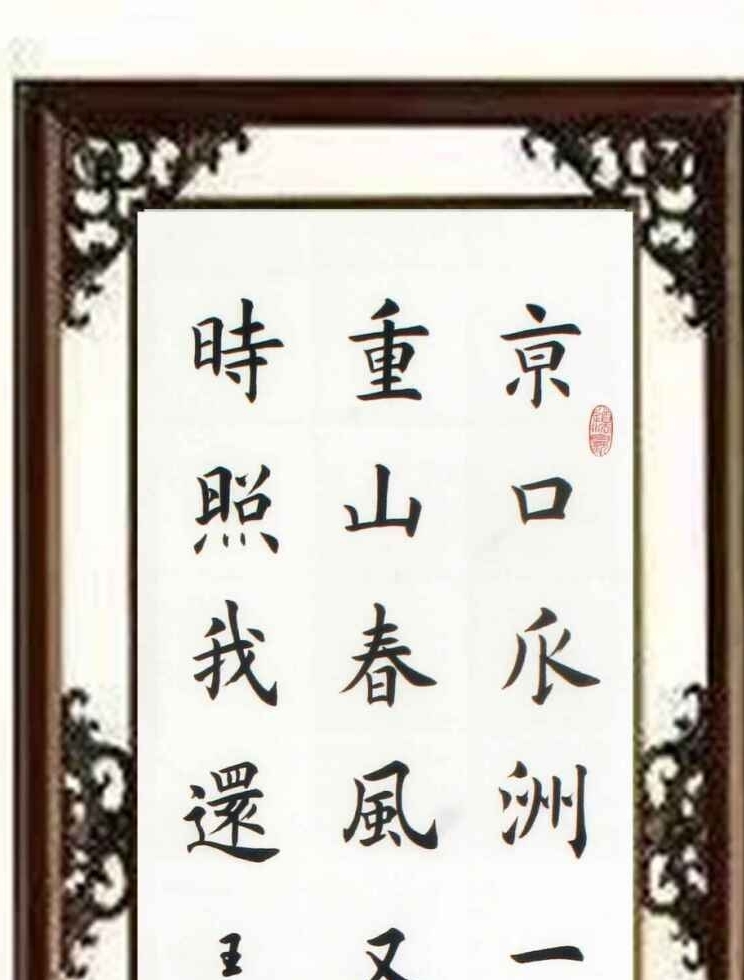 亰口瓜洲一
重山春風又
時照我還